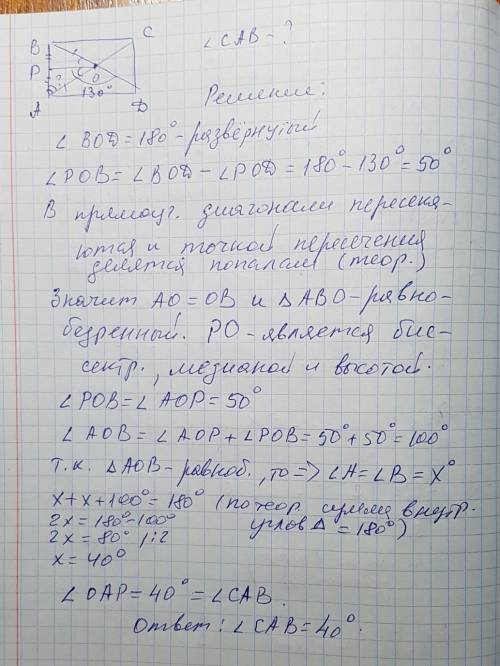 B
C
P
O
A
130°
D
∠CAB - ?
Решение:
∠BOD = 180° - развёрнутый
∠POB = ∠BOD - ∠POD = 180° - 130° = 50°
В прямоуг. диагонали пересека-
ются и точкой пересечения
делятся попалам (теор.)
Значит AO = OB и △ABO - равно-
бедренный. PO - является бис-
сектр., медианой и высотой.
∠POB = ∠AOP = 50°
∠AOB = ∠AOP + ∠POB = 50° + 50° = 100°
Т.к. △AOB - равноб., то => ∠A = ∠B = x°
x + x + 100° = 180° (по теор. сумма внутр.
2x = 180° - 100° углов △ = 180°)
2x = 80° /:2
x = 40°
∠OAP = 40° = ∠CAB.
Ответ: ∠CAB = 40°.